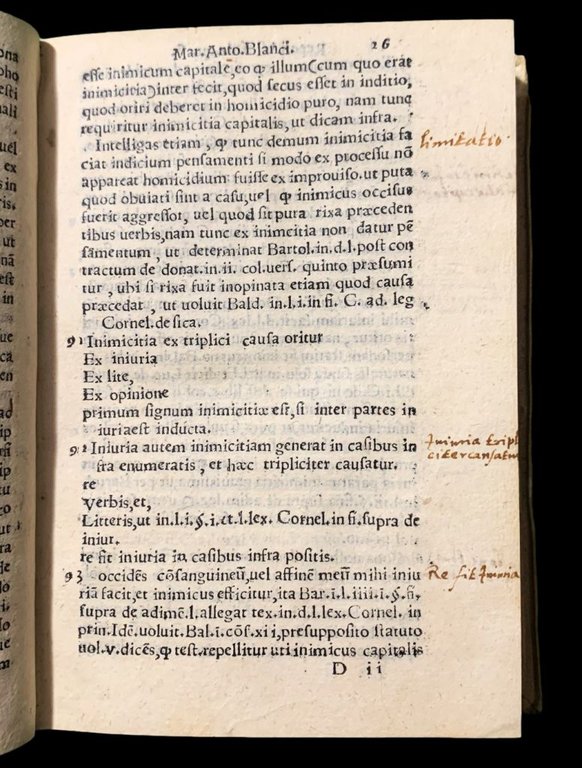 Mar. Anto. Blanci. 26
esse inimicum capitalē, eo ꝙ illum (cum quo erat
inimicitia) interfecit, quod secus esset in inditio,
quod oriri deberet in homicidio puro, nam tunc
requiritur inimicitia capitalis, ut dicam infra.
Intelligas etiam, ꝙ tunc demum inimicitia fa
ciat indicium pensamenti si modo ex processu nō
appareat homicidium fuisse ex improuiso. ut puta
quod obuiati sint a casu, uel ꝙ inimicus occisus
fuerit aggressor, uel quod sit pura rixa præceden
tibus uerbis, nam tunc ex inimcitia non datur pē
samentum, ut determinat Bartol. in. d. l. post con
tractum de donat. in. ii. col. uers. quinto præsumi
tur, ubi si rixa fuit inopinata etiam quod causa
præcedat, ut uoluit Bald. in. l. i. in fi. C. ad. leg
Cornel. de sica.
91 Inimicitia ex triplici causa oritur
Ex iniuria
Ex lite,
Ex opinione
primum signum inimicitiæ est, si inter partes in
iuria est inducta.
92 Iniuria autem inimicitiam generat in casibus in
fra enumeratis, et hæc tripliciter causatur.
re
Verbis, et,
Litteris, ut in. l. i. §. i. et. l. lex. Cornel. in fi. supra de
iniur.
re fit iniuria in casibus infra positis.
93 occidēs cōsanguineū, uel affinē meū mihi iniu
riā facit, et inimicus efficitur, ita Bar. i. l. iiii. i. §. fi.
supra de adimē. l. allegat tex. in. d. l. lex. Cornel. in
prin. Idē. uoluit. Bal. i. cōs. xii, presupposito statuto
uol. v. dicēs, ꝙ test. repellitur uti inimicus capitalis
D ii
limitatio.
Iniuria tripl
citer causatur
Re fit Iniuria